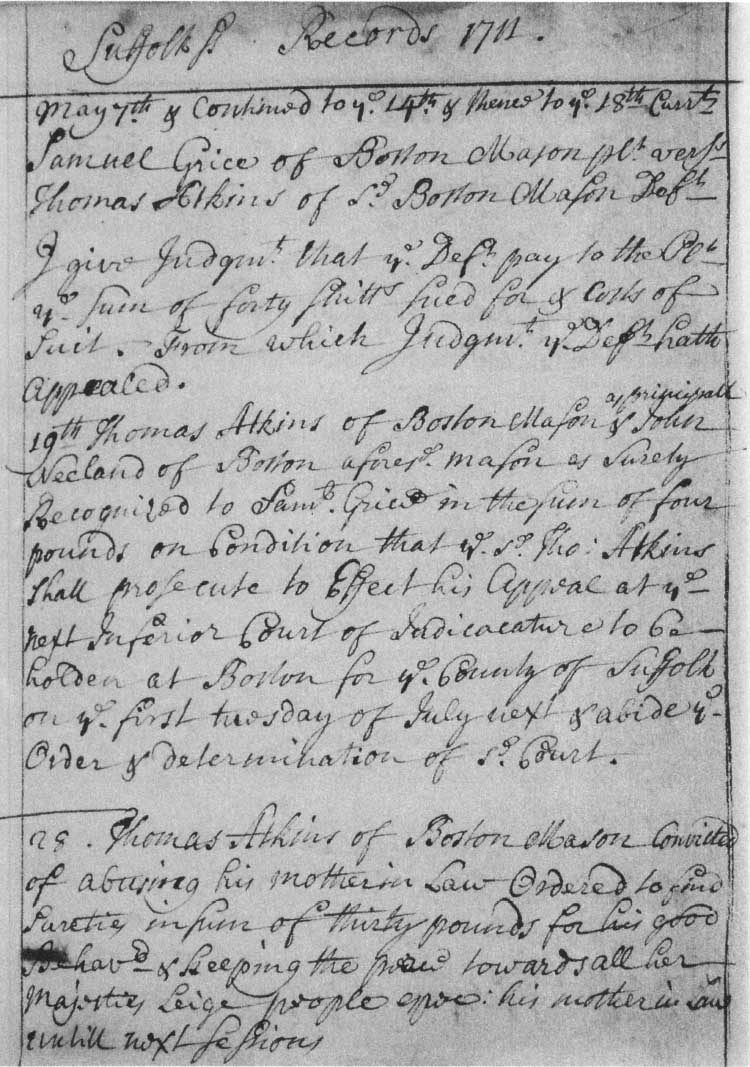 Suffolk ss Records 1711.
May 7th & Continued to ye. 14th. & thence to ye. 18th Currt
Samuel Grice of Boston Mason plt. verss
Thomas Atkins of sd. Boston Mason Deft
I give Judgmt. that ye. Deft. pay to the Plt
ye. sum of forty shills sued for & Costs of
Suit. From which Judgmt. ye. Deft. hath
Appealed.
as principall
19th Thomas Atkins of Boston Mason & John
Neeland of Boston afores. mason as Surety
Recognized to Saml. Grice in the sum of four
pounds on Condition that ye. sd. Tho: Atkins
shall prosecute to Effect his Appeal at ye
next Inferior Court of Judicacature to be
holden at Boston for ye. County of Suffolk
on ye. first tuesday of July next & abide ye
Order & determination of sd. Court.
28. Thomas Atkins of Boston Mason Convicted
of abusing his mother in Law Ordered to find
Sureties in sum of thirty pounds for his good
Behavr & keeping the peace towards all her
Majesties Leige people espec: his mother in Law
untill next Sessions